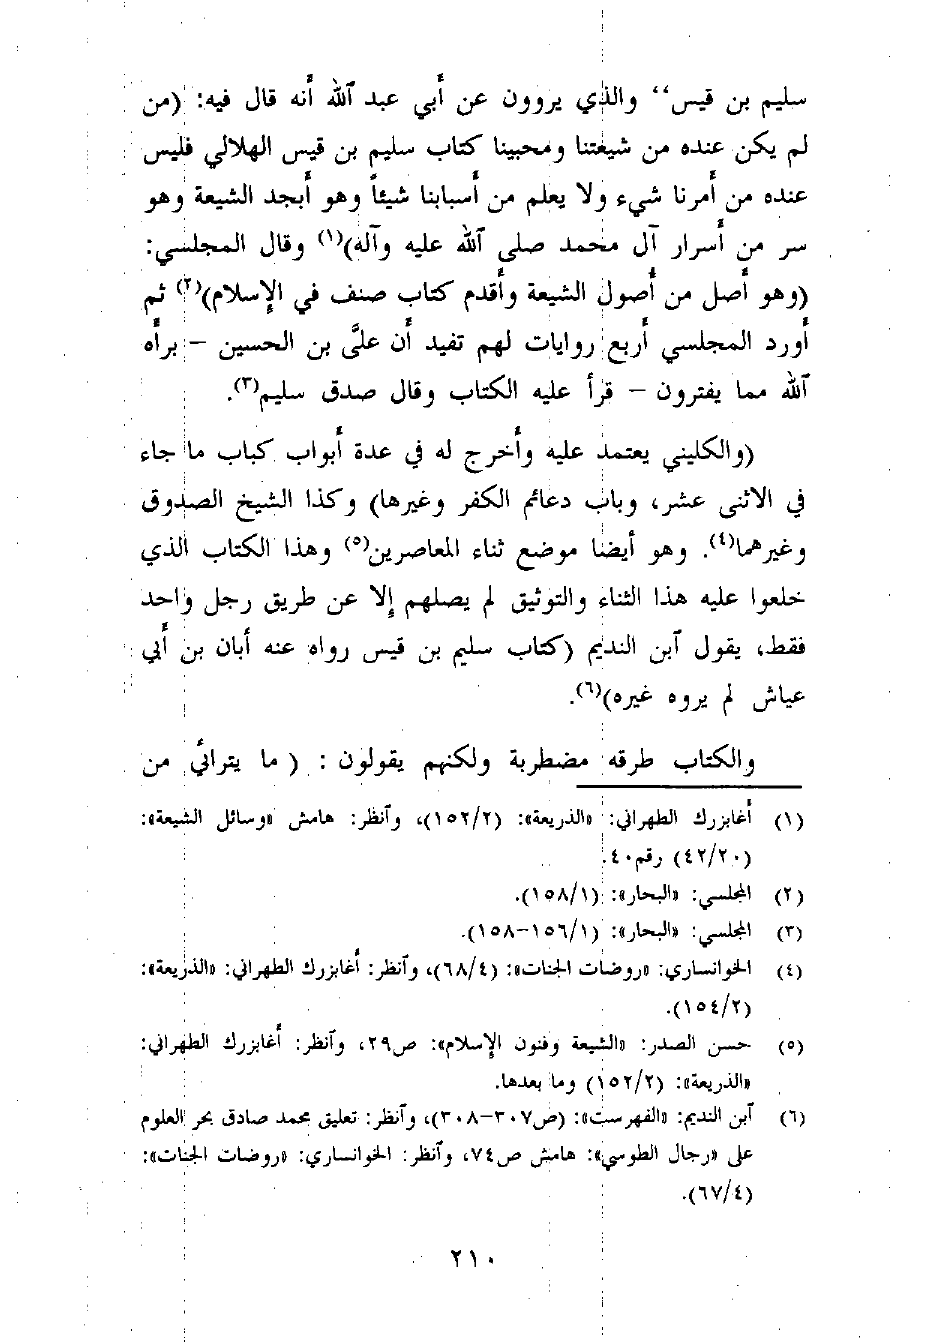 سليم بن قيس‘‘ والذي يروون عن أبي عبد ٱلله أنه قال فيه: (من
لم يكن عنده من شيعتنا ومحبينا كتاب سليم بن قيس الهلالي فليس
عنده من أمرنا شيء ولا يعلم من أسبابنا شيئاً وهو أبجد الشيعة وهو
سر من أسرار آل محمد صلى ٱلله عليه وآله)(١) وقال المجلسي:
(وهو أصل من أصول الشيعة وأقدم كتاب صنف في الإسلام)(٢) ثم
أورد المجلسي أربع روايات لهم تفيد أن عليَّ بن الحسين – برأه
ٱلله مما يفترون – قرأ عليه الكتاب وقال صدق سليم(٣).
(والكليني يعتمد عليه وأخرج له في عدة أبواب كباب ما جاء
في الاثنى عشر، وباب دعائم الكفر وغيرها) وكذا الشيخ الصدوق
وغيرهما(٤). وهو أيضا موضع ثناء المعاصرين(٥) وهذا الكتاب الذي
خلعوا عليه هذا الثناء والتوثيق لم يصلهم إلا عن طريق رجل واحد
فقط، يقول ٱبن النديم (كتاب سليم بن قيس رواه عنه أبان بن أبي
عياش لم يروه غيره)(٦).
والكتاب طرقه مضطربة ولكنهم يقولون : ( ما يترائي من
(١) أغابزرك الطهراني: «الذريعة»: (١٥٢/٢)، وٱنظر: هامش «وسائل الشيعة»:
(٤٢/٢٠) رقم٤٠.
(٢) المجلسي: «البحار»: (١٥٨/١).
(٣) المجلسي: «البحار»: (١٥٦/١–١٥٨).
(٤) الخوانساري: «روضات الجنات»: (٦٨/٤)، وٱنظر: أغابزرك الطهراني: «الذريعة»:
(١٥٤/٢).
(٥) حسن الصدر: «الشيعة وفنون الإسلام»: ص٢٩، وٱنظر: أغابزرك الطهراني:
«الذريعة»: (١٥٢/٢) وما بعدها.
(٦) ٱبن النديم: «الفهرست»: (ص٣٠٧–٣٠٨)، وٱنظر: تعليق محمد صادق بحر العلوم
على «رجال الطوسي»: هامش ص٧٤، وٱنظر: الخوانساري: «روضات الجنات»:
(٦٧/٤).
٢١٠